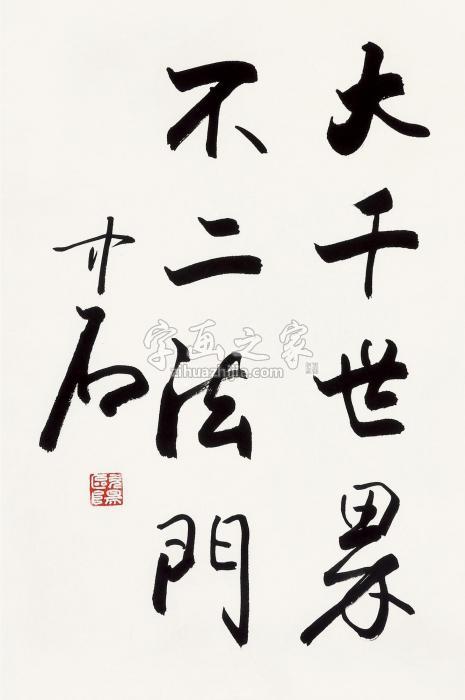 大千世界
不二法門
中石
字画之家
zihuazhijia.com